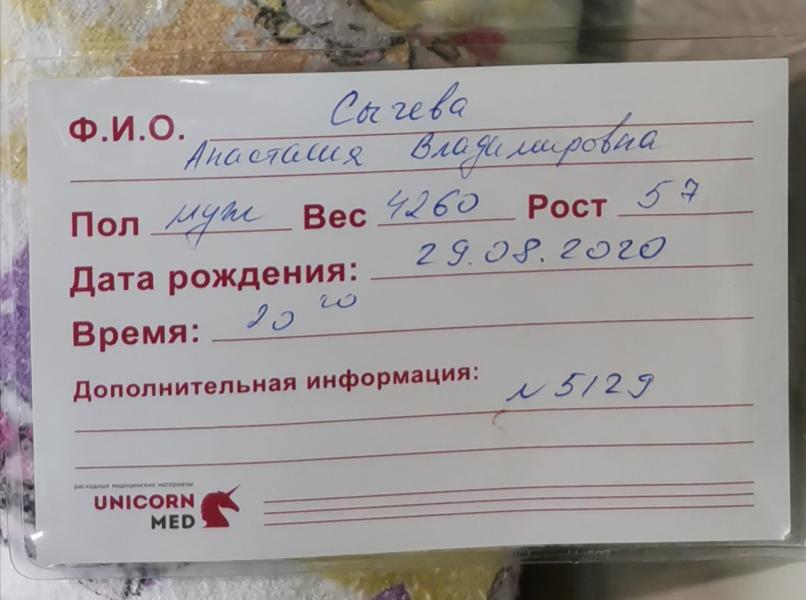 Ф.И.О. Сычева
Анастасия Владимировна
Пол муж Вес 4260 Рост 57
Дата рождения: 29.08.2020
Время: 20 20
Дополнительная информация: N 5129
расходные медицинские материалы
UNICORN
MED